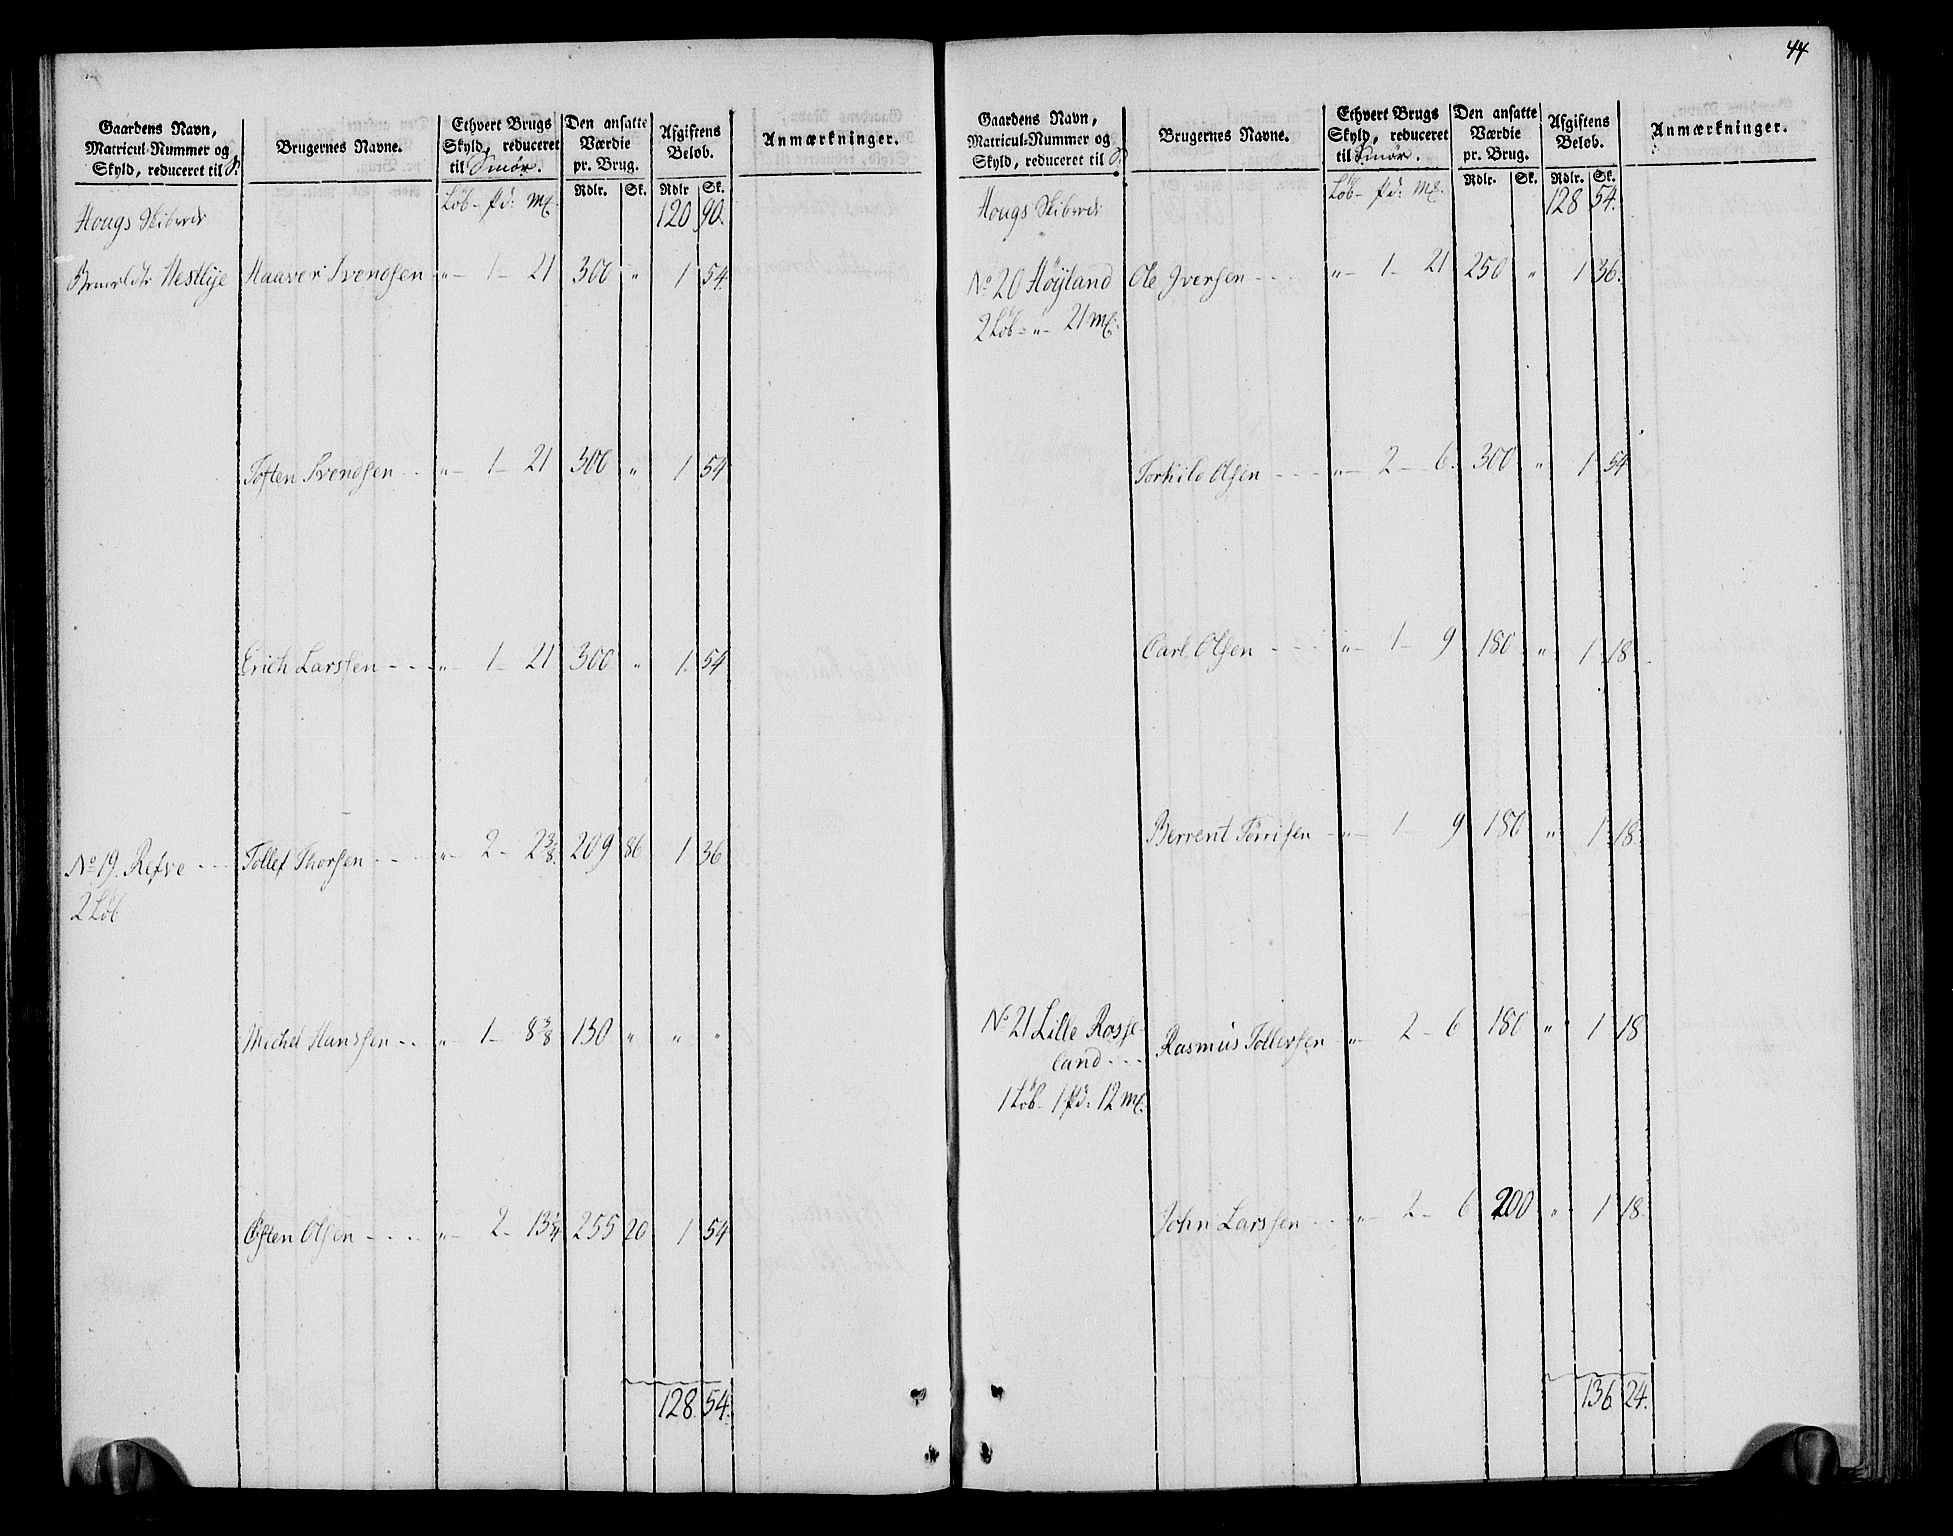 Gaardens Navn,
Matricul-Nummer og
Skyld, reduceret til S.
Brugernes Navne.
Ethvert Brugs
Skyld, reduceret
til Smör.
Den ansatte
Værdie
pr. Brug.
Afgiftens
Beløb.
Anmærkninger.
Rdlr. Sk. Rdlr Sk.
Löb - pd: Mk.
Hougs Skibrede 120 90.
Westlye Haaver Svendsen - " - 1 - 21 300 " 1 54.
Toften Svendsen - - " - 1 - 21 300 " 1 54
Erich Larssen - - - " - 1 - 21 300 " 1. 54
No 19. Refve - - - Tollef Thorsen - - - " - 2 - 2 3/8. 209 86 1 36
2 Löb
Michel Hanssen - - " - 1 - 8 3/8 130 " " "
Östen Olsen - - - - " - 2 - 13 1/4 255 20 1 54
128 54.
44
Gaardens Navn,
Matricul-Nummer og
Skyld, reduceret til S.
Brugernes Navne.
Ethvert Brugs
Skyld, reduceret
til Smör.
Den ansatte
Værdie
pr. Brug.
Afgiftens
Beløb.
Anmærkninger.
Rdlr. Sk. Rdlr. Sk.
Löb - pd: Mk.
Hougs Skibrede 128 54.
No 20 Höyland Ole Iversen - - - - " - 1 - 21 250 " 1 36.
2 Löb - " - 21 Mk:
Torkild Olsen - - - " - 2 - 6. 300 " 1 54
Carl Olsen - - - " - 1 - 9 180 " 1 18
Berrent Törrisen - " - 1 - 9 180 " 1 18.
No 21 Lille Rosse-
land - - - Rasmus Tollevsen " - 2 - 6 180 " 1 18
1 Löb - 1 pd: 12 Mk.
John Larssen - - " - 2 - 6 200 " 1 18.
136 24.